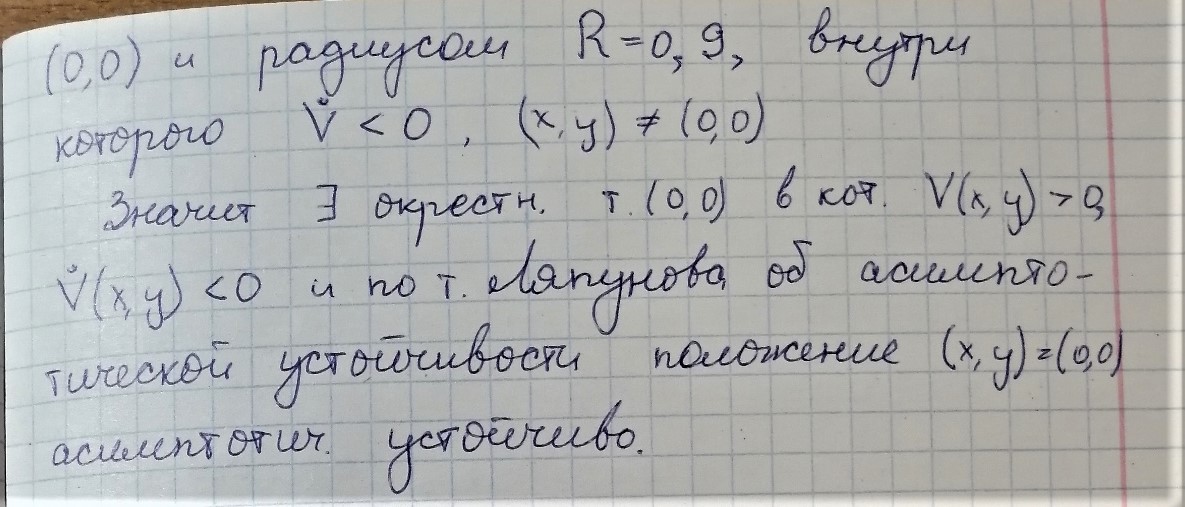 (0,0) и радиусом R=0,9, внутри
которого V̇ < 0, (x,y) ≠ (0,0)
Значит ∃ окрестн. т. (0,0) в кот. V(x,y) > 0,
V̇(x,y) < 0 и по т. Ляпунова об асимпто-
тической устойчивости положение (x,y)=(0,0)
асимптотич. устойчиво.